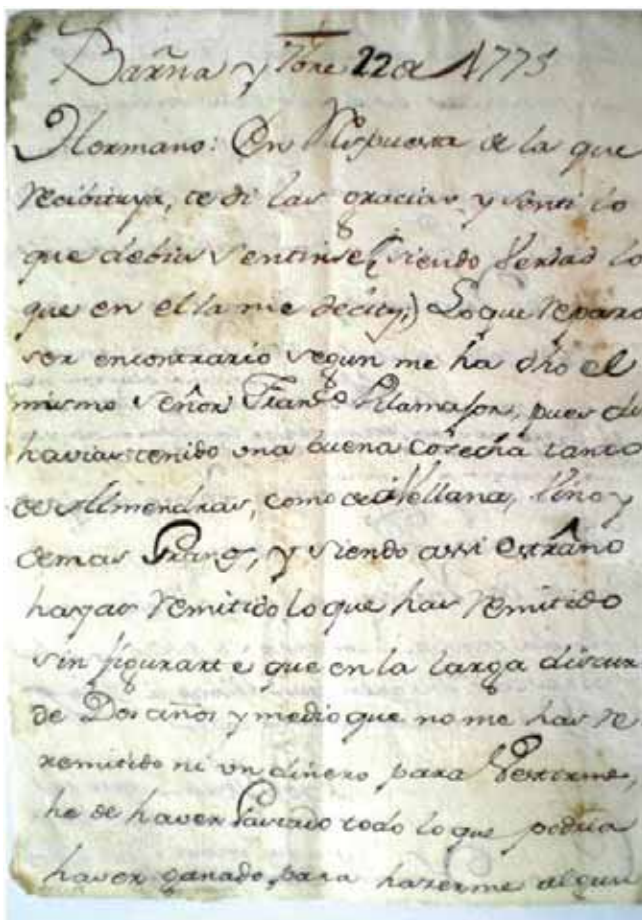 Barña y 7bre 22 de 1775
Hermano: En Respuesta de la que
Recibi tuya, te di las gracias y senti lo
que debia sentirse (siendo Verdad lo
que en ella me decias;) Lo que Reparo
ser encontrario segun me ha dho el
mismo señor Franco, pues dis
havias tenido una buena Cosecha tanto
de Almendras, como de Avellana, Vino y
demas Granos, y siendo assi estraño
hayas Remitido lo que has Remitido
sin figurarte que en la larga discur
de Dos años y medio que no me has Re
remitido ni un dinero para Vestirme,
he de haver Gastado todo lo que podria
haver ganado, para hazerme algun